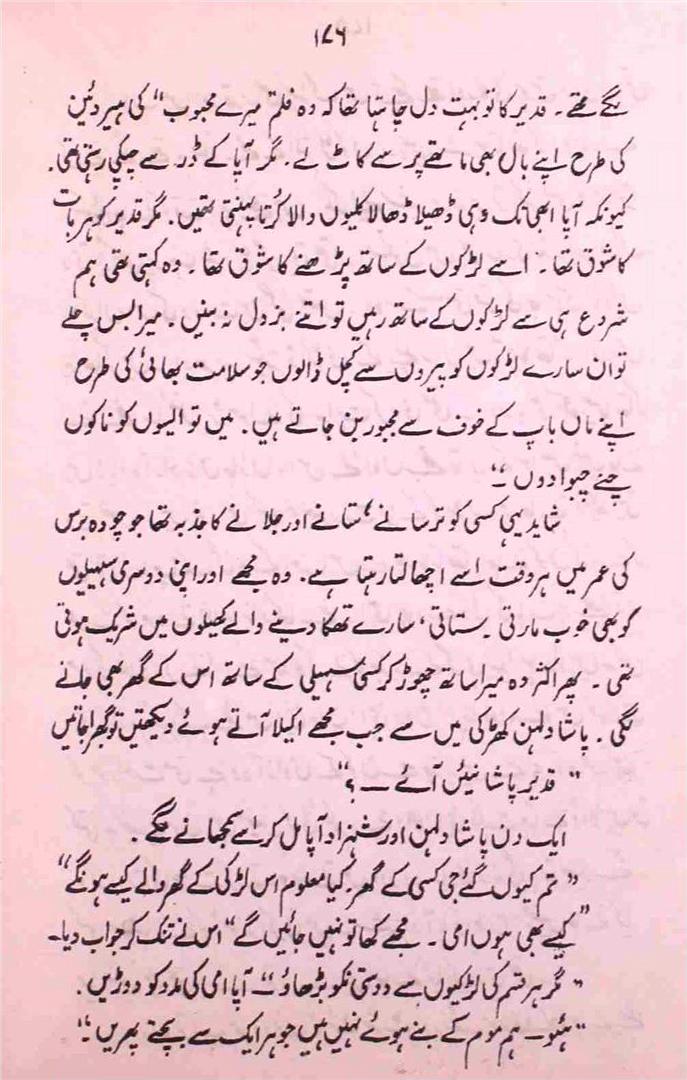 ۱۷۶
لگے تھے۔ قدیر کا تو بہت دل چاہتا تھا کہ وہ فلم "میرے محبوب" کی ہیروئین
کی طرح اپنے بال بھی ماتھے پر سے کاٹ لے۔ مگر آپا کے ڈر سے چپکی رہتی تھی۔
کیونکہ آپا ابھی تک وہی ڈھیلا ڈھالا کلیوں والا کُرتا پہنتی تھیں۔ مگر قدیر کو ہر بات
کا شوق تھا۔ اسے لڑکوں کے ساتھ پڑھنے کا شوق تھا۔ وہ کہتی تھی ہم
شروع ہی سے لڑکوں کے ساتھ رہیں تو اتنے بزدل نہ بنیں۔ میرا بس چلے
تو ان سارے لڑکوں کو پیروں سے کچل ڈالوں جو سلامت بھائی کی طرح
اپنے ماں باپ کے خوف سے مجبور بن جاتے ہیں۔ میں تو ایسوں کو ناکوں
چنے چبوا دوں۔"
شاید یہی کسی کو ترسانے، ستانے اور جلانے کا جذبہ تھا جو چودہ برس
کی عمر میں ہر وقت اسے اچھالتا رہتا ہے۔ وہ مجھے اور اپنی دوسری سہیلیوں
کو بھی خوب مارتی۔ ستاتی، سارے تھکا دینے والے کھیلوں میں شریک ہوتی
تھی۔ پھر اکثر وہ میرا ساتھ چھوڑ کر کسی سہیلی کے ساتھ اس کے گھر بھی جانے
لگی۔ پاشا دلہن کھڑکی میں سے جب مجھے اکیلا آتے ہوئے دیکھتیں تو گھبرا جاتیں
"قدیر پاشا نیئں آئے ــ ؟"
ایک دن پاشا دلہن اور شہزاد آپا مل کر اسے سمجھانے لگے۔
"تم کیوں گئے جی کسی کے گھر۔ کیا معلوم اس لڑکی کے گھر والے کیسے ہونگے"
"کیسے بھی ہوں امی۔ مجھے کھا تو نہیں جائیں گے" اس نے تنک کر جواب دیا۔
"مگر ہر قسم کی لڑکیوں سے دوستی نکو بڑھاؤ۔" آپا امی کی مدد کو دوڑیں۔
"ہٹو۔ ہم موم کے بنے ہوئے نہیں ہیں جو ہر ایک سے بچتے پھریں۔"